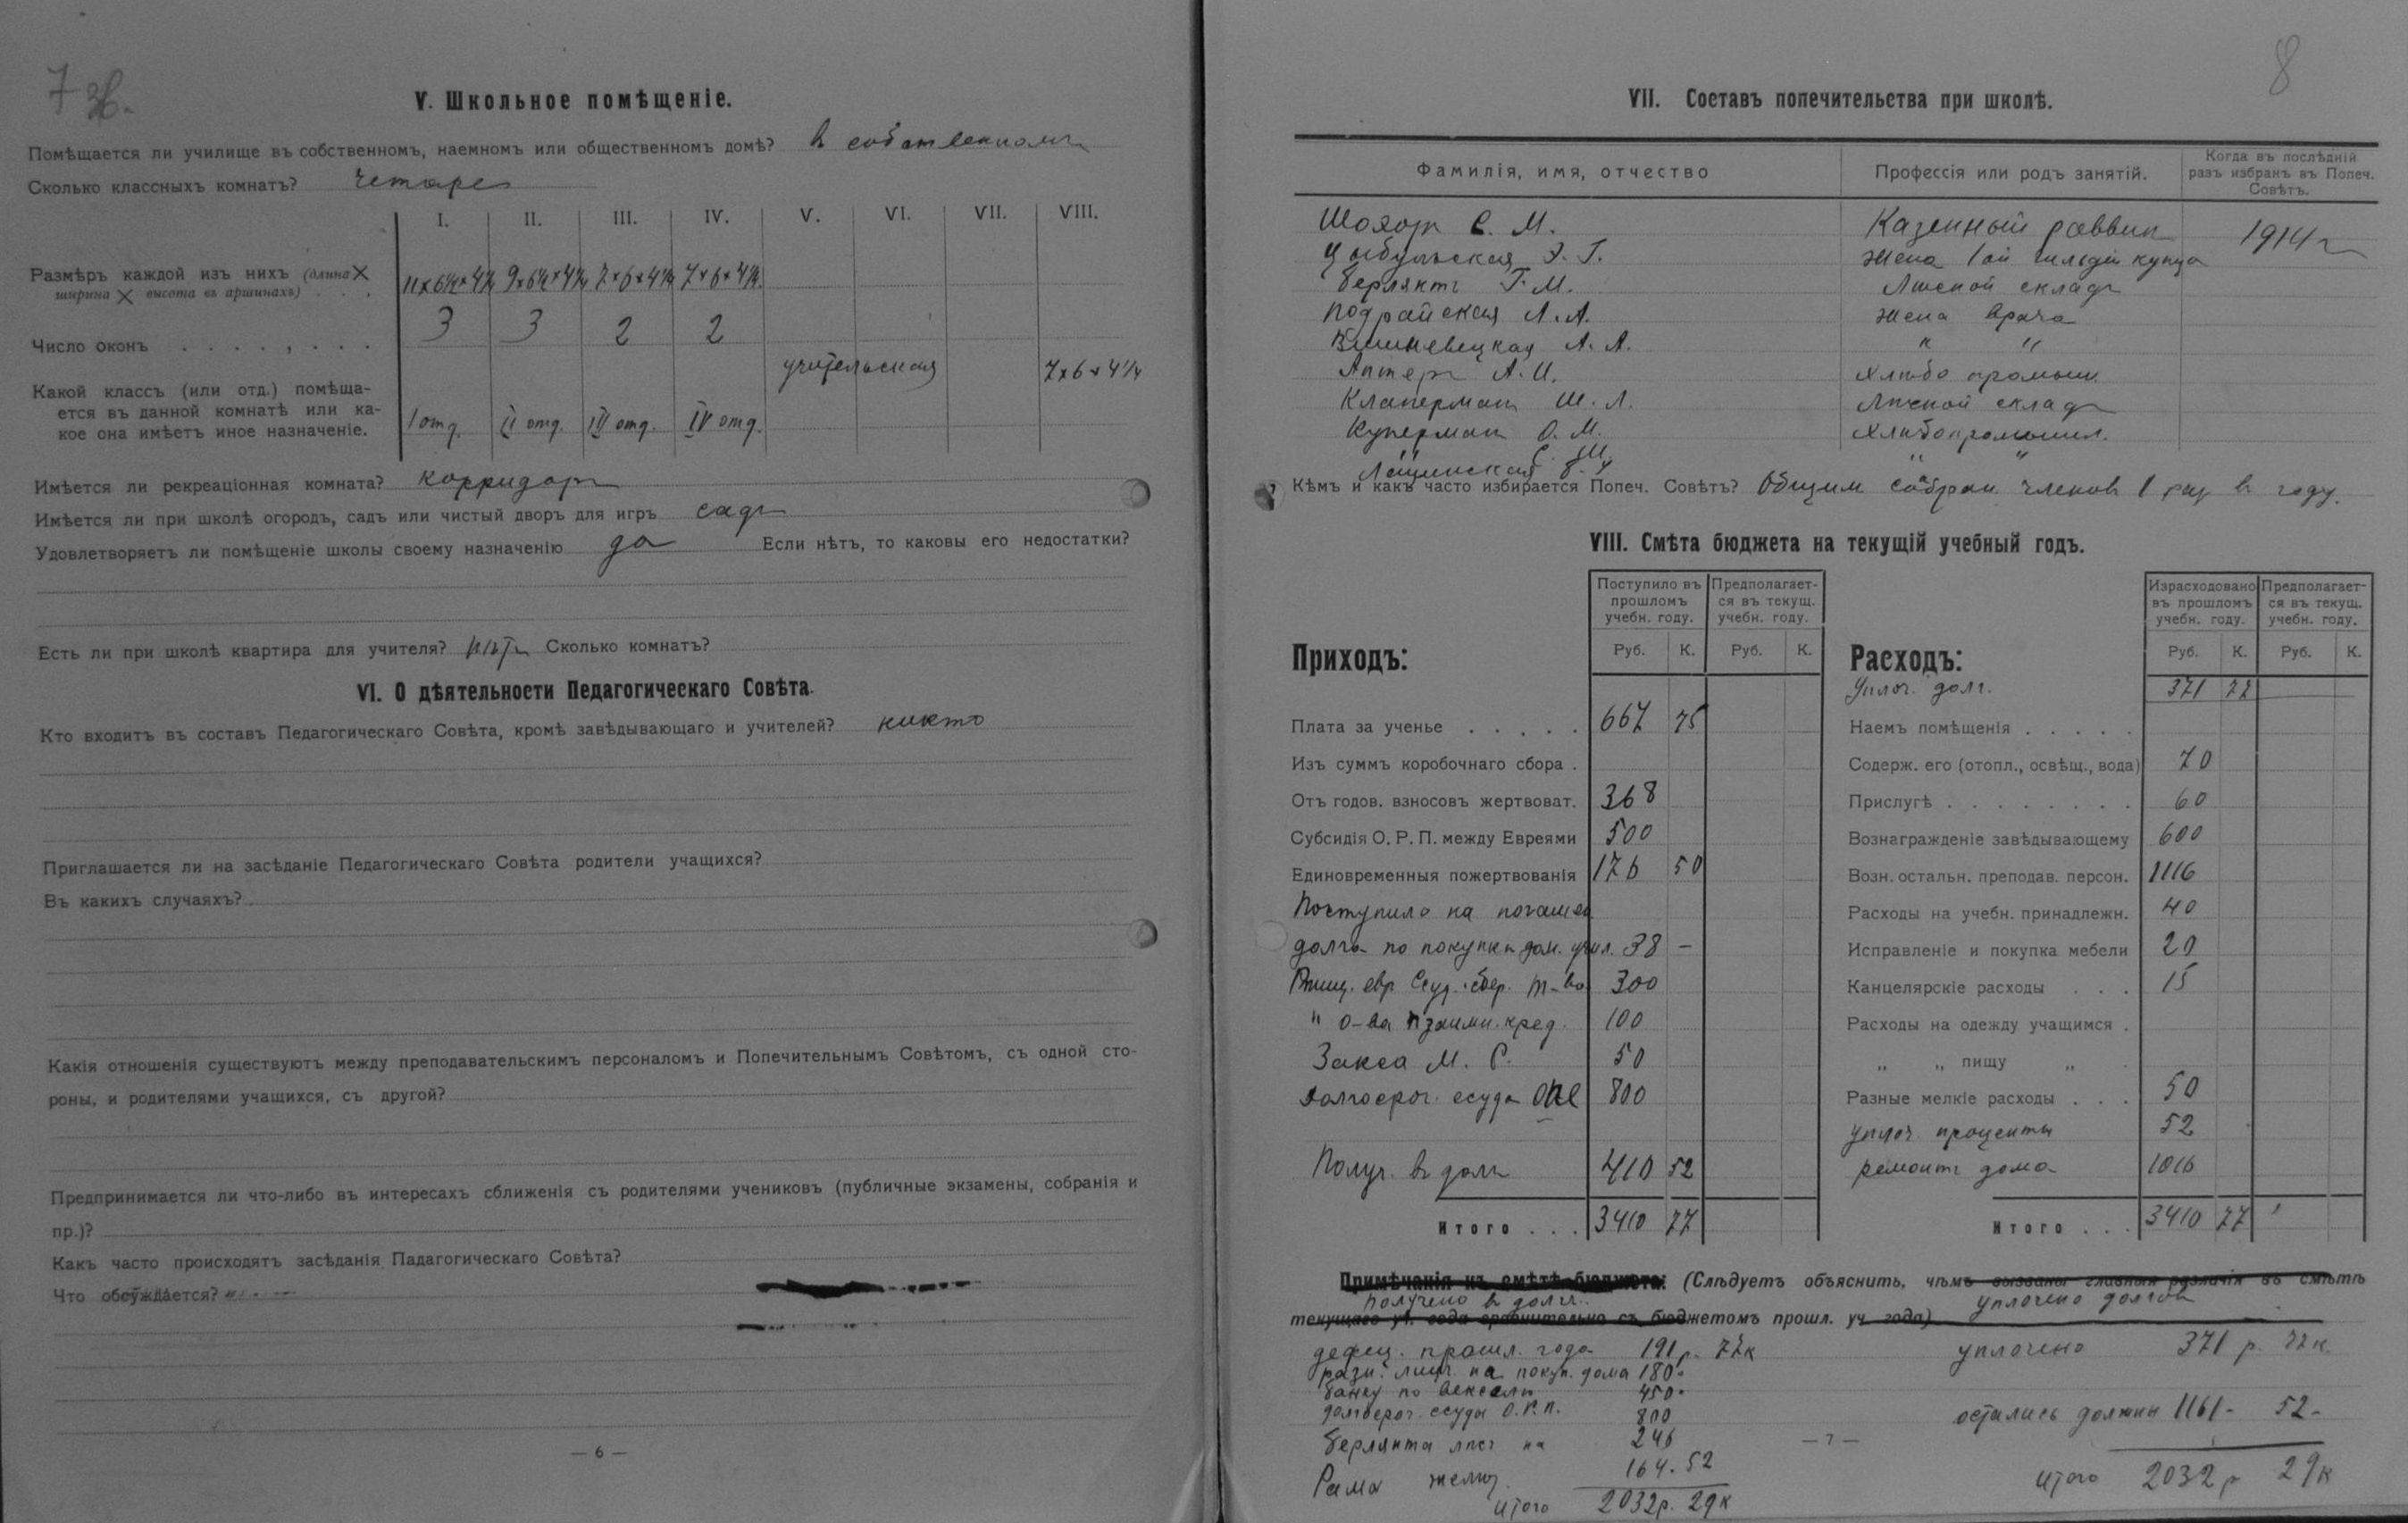 7 об.
V. Школьное помѣщеніе.
Помѣщается ли училище въ собственномъ, наемномъ или общественномъ домѣ? в собственномъ
Сколько классныхъ комнатъ? четыре
I. II. III. IV. V. VI. VII. VIII.
Размѣръ каждой изъ нихъ (длина ×
ширина × высота въ аршинахъ) . . .
11×6½×4¼ 9×6½×4¼ 7×6×4¼ 7×6×4¼.
Число оконъ . . . . , . . . 3 3 2 2
учительская 7×6×4¼
Какой классъ (или отд.) помѣща-
ется въ данной комнатѣ или ка-
кое она имѣетъ иное назначеніе.
I отд. II отд. III отд. IV отд.
Имѣется ли рекреаціонная комната? корридоръ
Имѣется ли при школѣ огородъ, садъ или чистый дворъ для игръ садъ
Удовлетворяетъ ли помѣщеніе школы своему назначенію да Если нѣтъ, то каковы его недостатки?
Есть ли при школѣ квартира для учителя? нѣтъ Сколько комнатъ?
VI. О дѣятельности Педагогическаго Совѣта.
Кто входитъ въ составъ Педагогическаго Совѣта, кромѣ завѣдывающаго и учителей? никто
Приглашается ли на засѣданіе Педагогическаго Совѣта родители учащихся?
Въ какихъ случаяхъ?
Какія отношенія существуютъ между преподавательскимъ персоналомъ и Попечительнымъ Совѣтомъ, съ одной сто-
роны, и родителями учащихся, съ другой?
Предпринимается ли что-либо въ интересахъ сближенія съ родителями учениковъ (публичные экзамены, собранія и
пр.)?
Какъ часто происходятъ засѣданія Падагогическаго Совѣта?
Что обсуждается?
— 6 —
8
VII. Составъ попечительства при школѣ.
Фамилія, имя, отчество Профессія или родъ занятій. Когда въ послѣдній
разъ избранъ въ Попеч.
Совѣтъ.
С. М. Казенный раввин 1914 г
Цыбульская Э. Г. жена 1ой гильдіи купца
Берлянтъ Г. М. Лѣсной складъ
Подрайская А. А. жена врача
Вишневецкая А. А. " "
Аптеръ А. И. Хлѣбопромыш.
Клаперманъ Ш. Л. Лѣсной складъ
Куперманъ О. М. Хлѣбопромышл.
" С. Ш. " "
Кѣмъ и какъ часто избирается Попеч. Совѣтъ? Общим собран. членов 1 раз в году.
VIII. Смѣта бюджета на текущій учебный годъ.
Приходъ: Поступило въ
прошломъ
учебн. году. Предполагает-
ся въ текущ.
учебн. году.
Руб. К. Руб. К.
Плата за ученье . . . . . 667 75
Изъ суммъ коробочнаго сбора .
Отъ годов. взносовъ жертвоват. 368
Субсидія О. Р. П. между Евреями 500
Единовременныя пожертвованія 176 50
Поступило на погашен
долга по покупкѣ дом. учил. 38 –
евр. Ссуд. сбер. т-ва 300
" о-ва взаимн. кред. 100
Закса М. С. 50
Долгосроч. ссуда ОПЕ 800
Получ. в долг 410 52
Итого . . . 3410 77
Расходъ: Израсходовано
въ прошломъ
учебн. году. Предполагает-
ся въ текущ.
учебн. году.
Руб. К. Руб. К.
Уплоч. долг. 371 77
Наемъ помѣщенія . . . . .
Содерж. его (отопл., освѣщ., вода) 70
Прислугѣ . . . . . . . . 60
Вознагражденіе завѣдывающему 600
Возн. остальн. преподав. персон. 1116
Расходы на учебн. принадлежн. 40
Исправленіе и покупка мебели 20
Канцелярскіе расходы . . . 15
Расходы на одежду учащимся .
„ „ пищу „
Разные мелкіе расходы . . . 50
уплоч. проценты 52
ремонтъ дома 1016
Итого . . . 3410 77
Примѣчанія къ смѣтѣ бюджета: (Слѣдуетъ объяснить, чѣмъ вызваны главныя различія въ смѣтѣ
получено в долг. уплочено долгов
текущаго уч. года сравнительно съ бюджетомъ прошл. уч. года)
дефиц. прошл. года 191 р. 77к уплочено 371 р. 77 к.
разн. лиц. на покуп. дома 180
банку по векселю 450
долгосроч. ссуды О.Р.П. 800 остались должны 1161 – 52 –
Берлянта лѣс на 246
164.52
итого 2032 р. 29к
итого 2032 р 29к
— 7 —